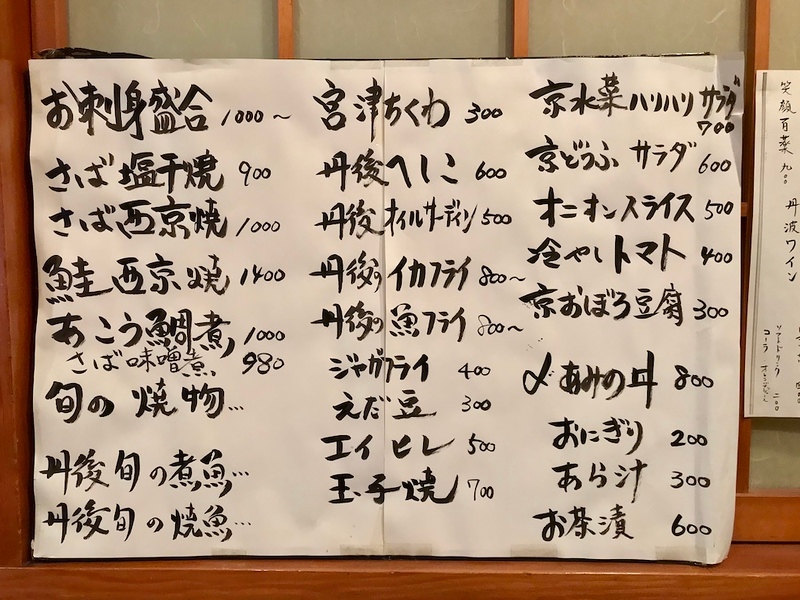 お刺身盛合 1000～
さば塩干焼 900
さば西京焼 1000
鮭西京焼 1400
あこう鯛煮 1000
さば味噌煮 980
旬の焼物…
丹後旬の煮魚…
丹後旬の焼魚…
宮津ちくわ 300
丹後へしこ 600
丹後オイルサーディン 500
丹後のイカフライ 800～
丹後の魚フライ 800～
ジャガフライ 400
えだ豆 300
エイヒレ 500
玉子焼 700
京水菜ハリハリサラダ
700
京どうふサラダ 600
オニオンスライス 500
冷やしトマト 400
京おぼろ豆腐 300
〆あみの丼 800
おにぎり 200
あら汁 300
お茶漬 600
笑顔百薬 九〇〇
丹波ワイン
ソフトドリンク 二〇〇
コーラ